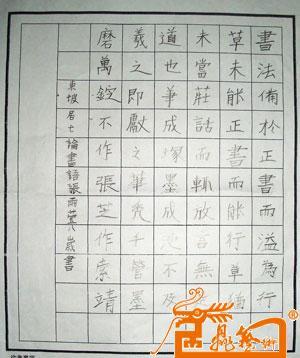 書法備於正書而溢為行
草未能正書而能行草猶
未當莊話而輒放言無
道也筆成塚墨成池不及
羲之即獻之筆禿千管墨
磨萬錠不作張芝作索靖
東坡居士論書語張雨萱八歲書